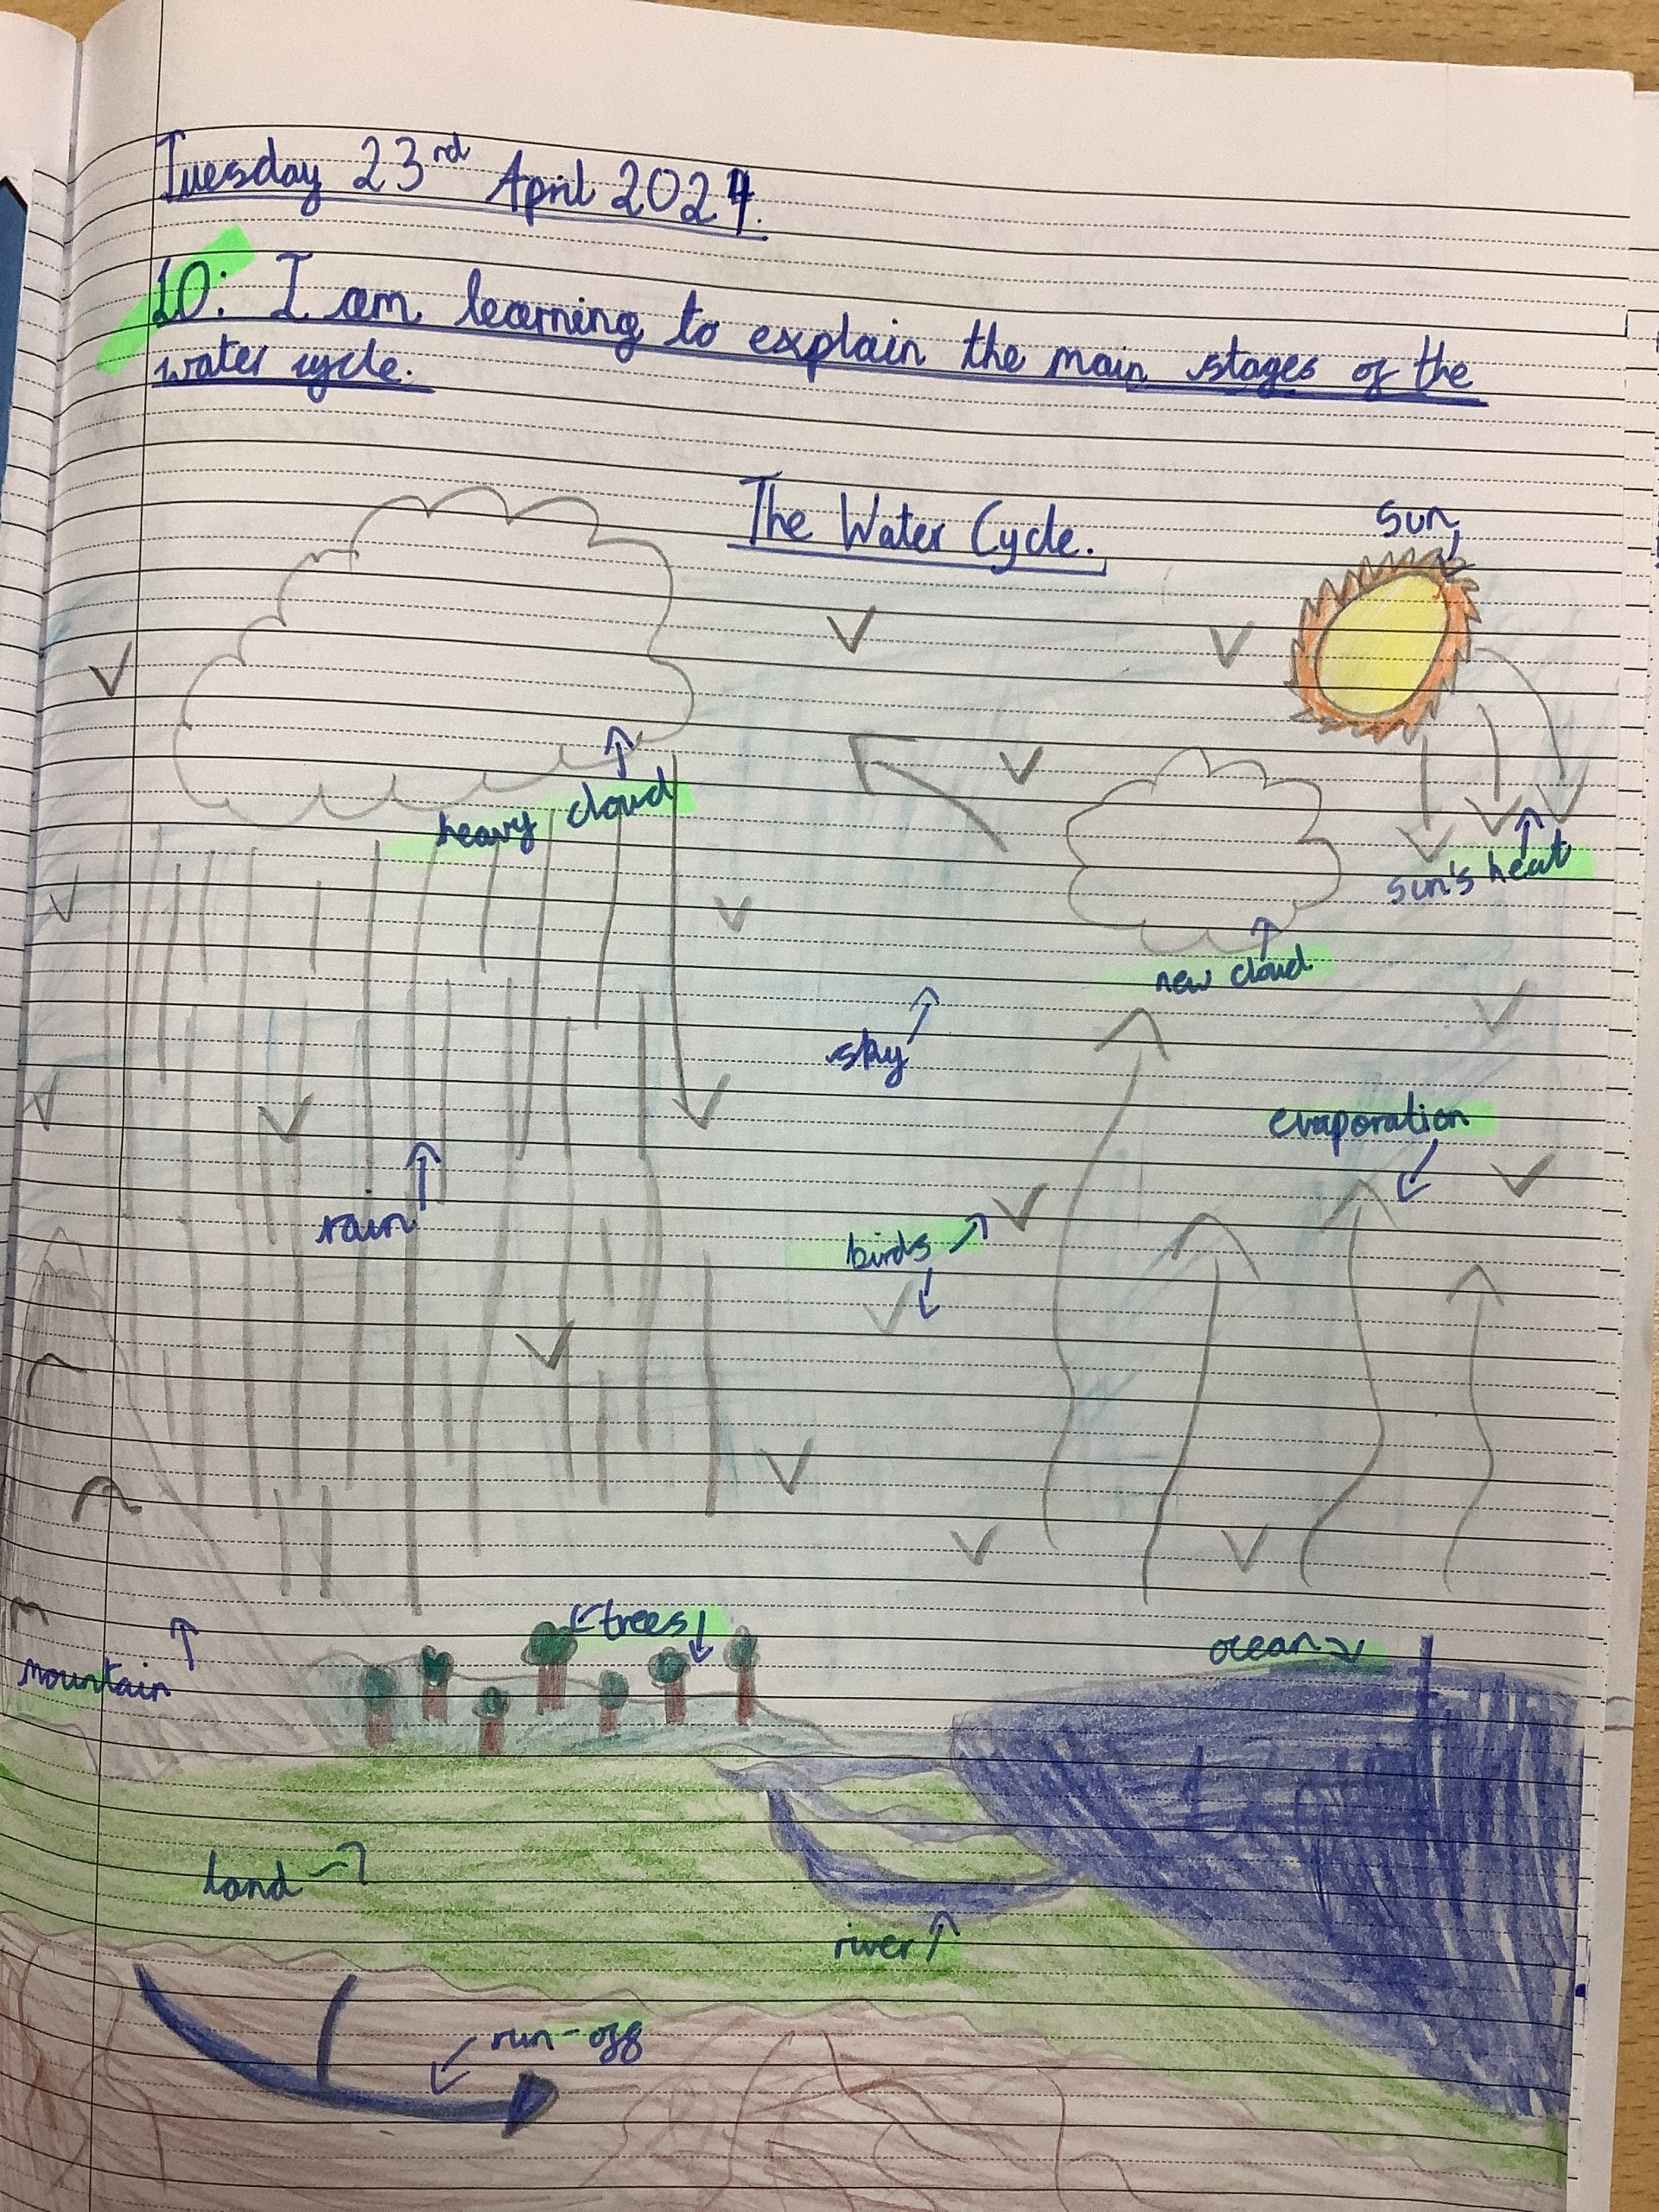 Tuesday 23rd April 2024.
LO: I am learning to explain the main stages of the
water cycle.
The Water Cycle.
Sun
heavy cloud
sun's heat
new cloud
sky
evaporation
rain
birds
trees
ocean
mountain
land
river
run-off